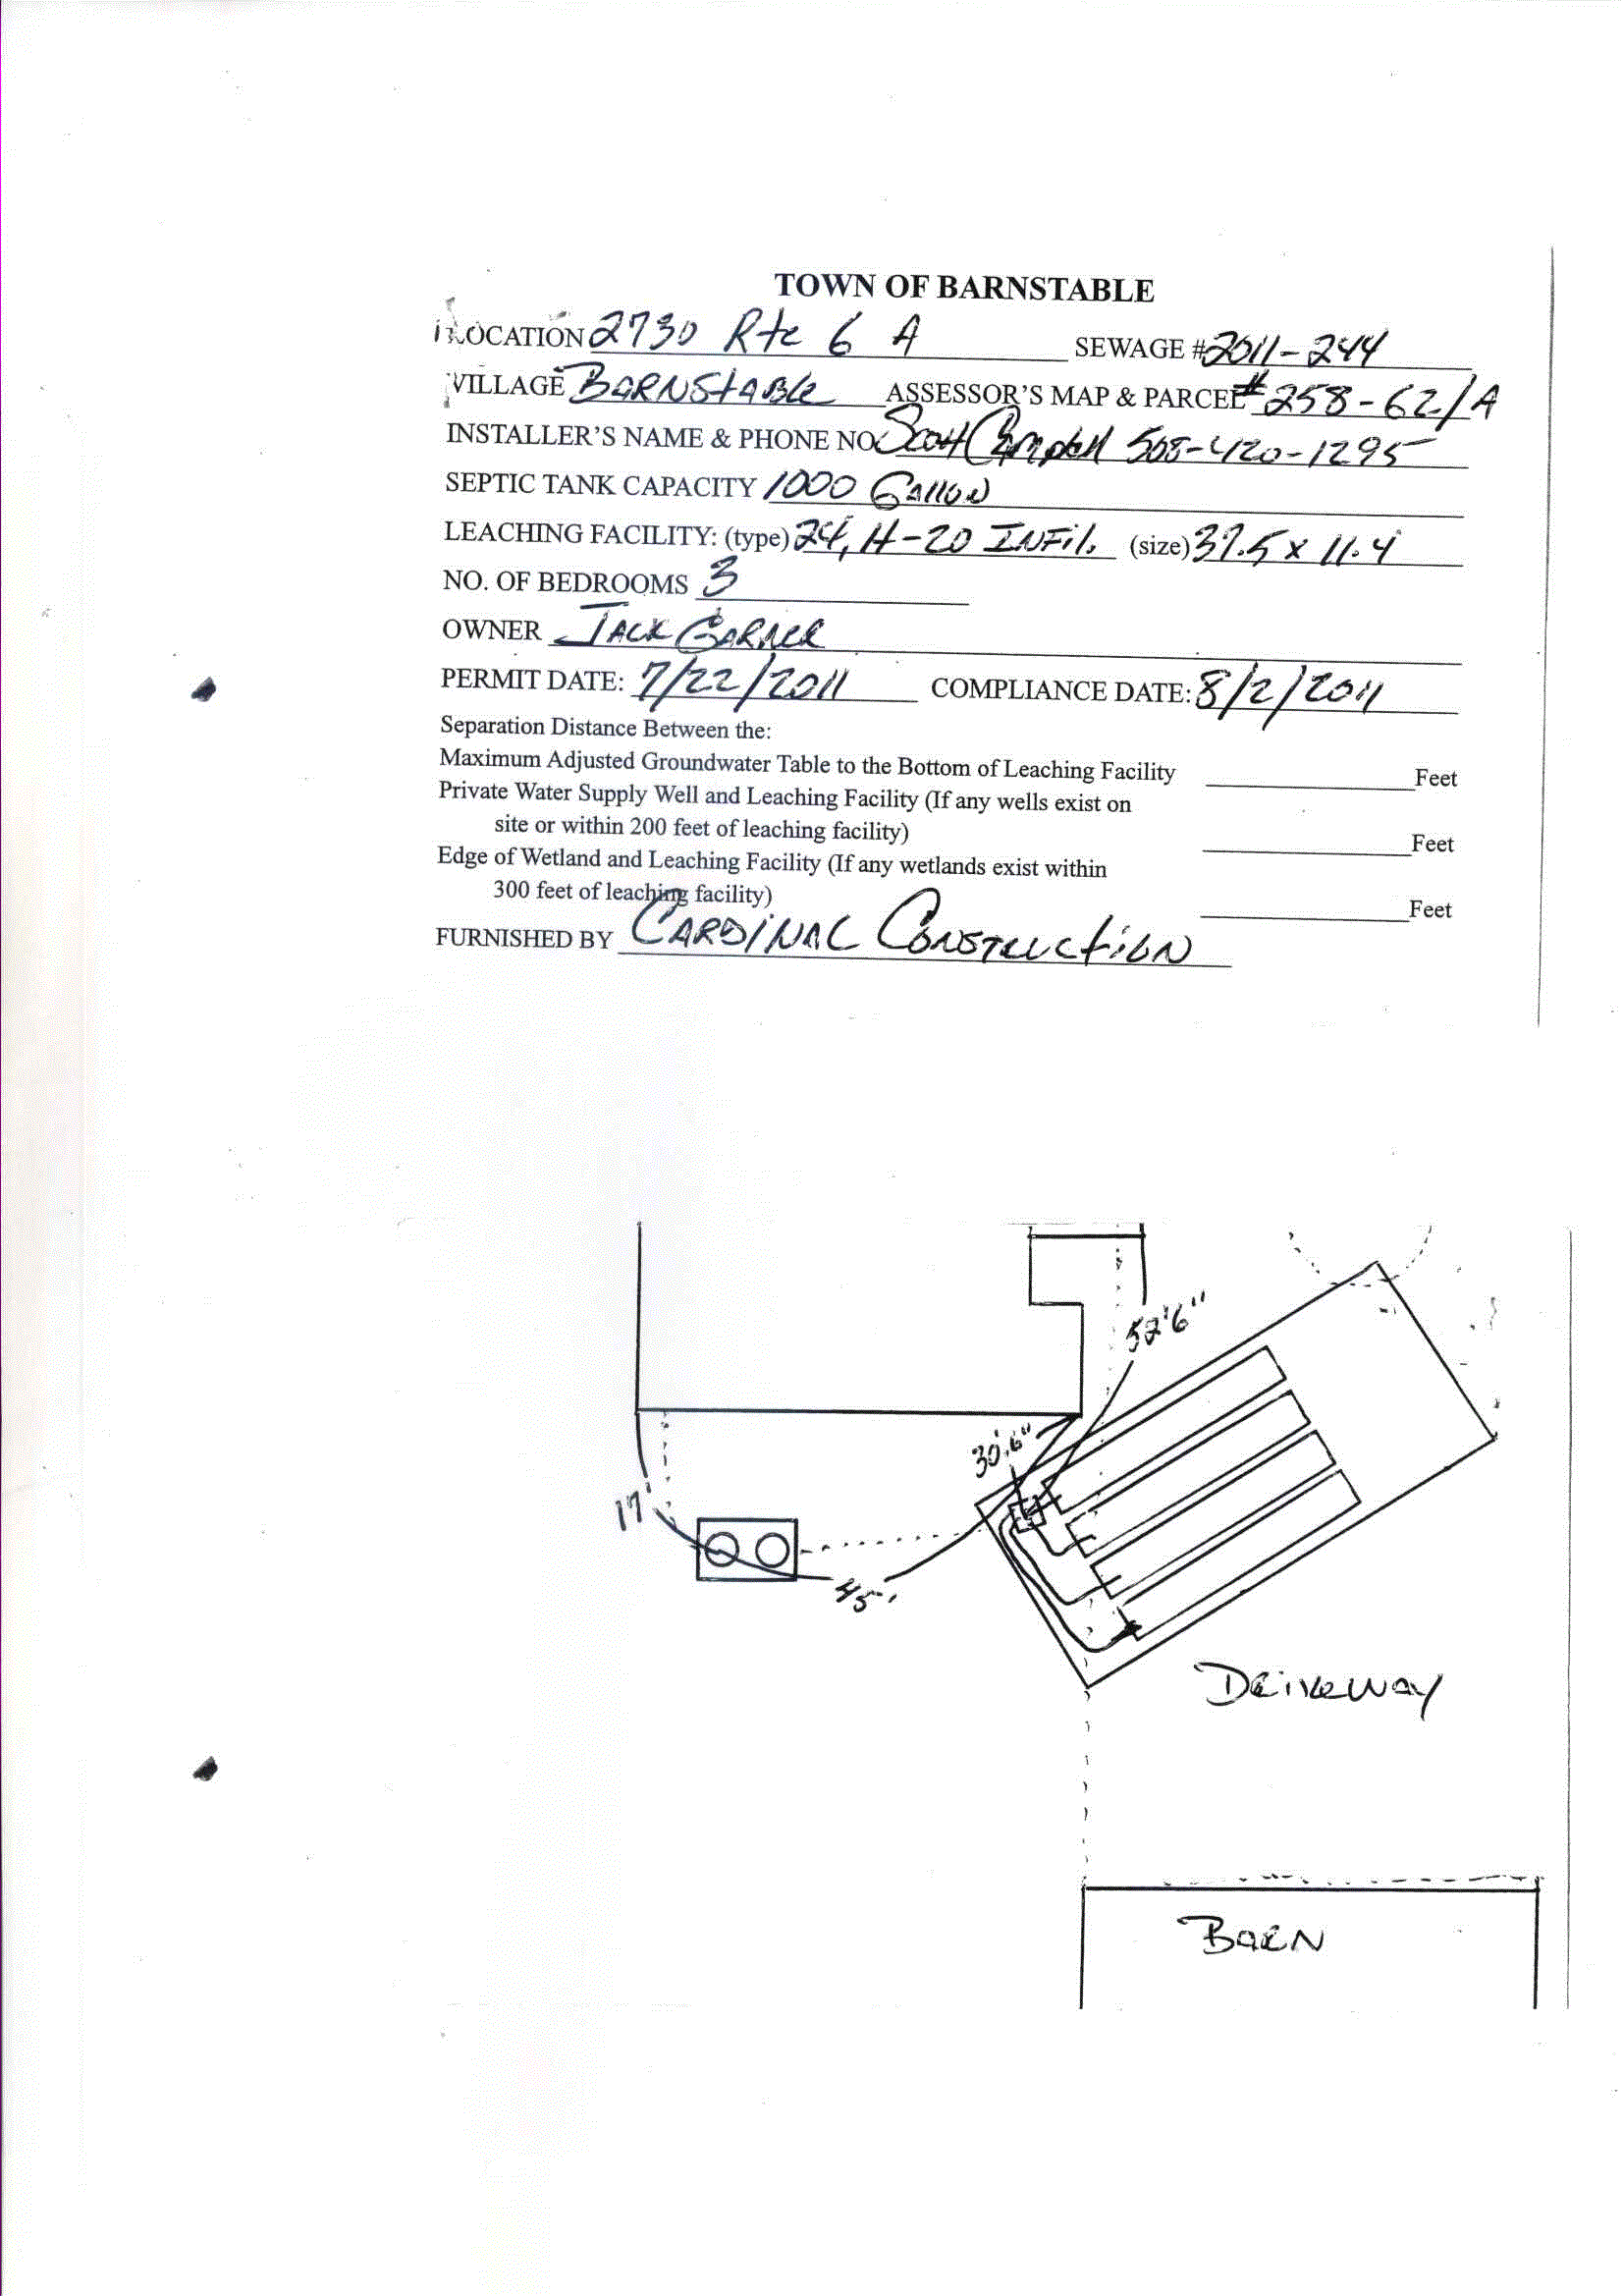 TOWN OF BARNSTABLE
LOCATION 2730 Rte 6 A SEWAGE # 2011-244
VILLAGE BARNSTABLE ASSESSOR'S MAP & PARCEL # 258-62/A
INSTALLER'S NAME & PHONE NO. Scott Campbell 508-420-1295
SEPTIC TANK CAPACITY 1000 GALLON
LEACHING FACILITY: (type) 24, H-20 INFIL. (size) 37.5 x 11.4
NO. OF BEDROOMS 3
OWNER JACK
PERMIT DATE: 7/22/2011 COMPLIANCE DATE: 8/2/2011
Separation Distance Between the:
Maximum Adjusted Groundwater Table to the Bottom of Leaching Facility Feet
Private Water Supply Well and Leaching Facility (If any wells exist on
site or within 200 feet of leaching facility) Feet
Edge of Wetland and Leaching Facility (If any wetlands exist within
300 feet of leaching facility) Feet
FURNISHED BY CARDINAL CONSTRUCTION
52'6"
30'6"
17'
45'
DRIVEWAY
BARN